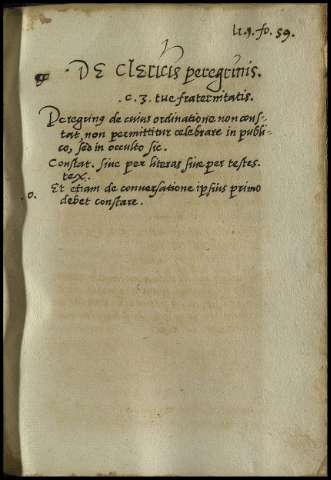 li.9. fo. 59.
DE clericis peregrinis.
.c. 3. tue fraternitatis.
Peregrinq de cuius ordinatione non cons-
tat, non permittitur celebrare in publi-
co, sed in occulto sic.
Constat. siue per literas siue per testes.
tex.
Et etiam de conversatione ipsius primo
debet constare.